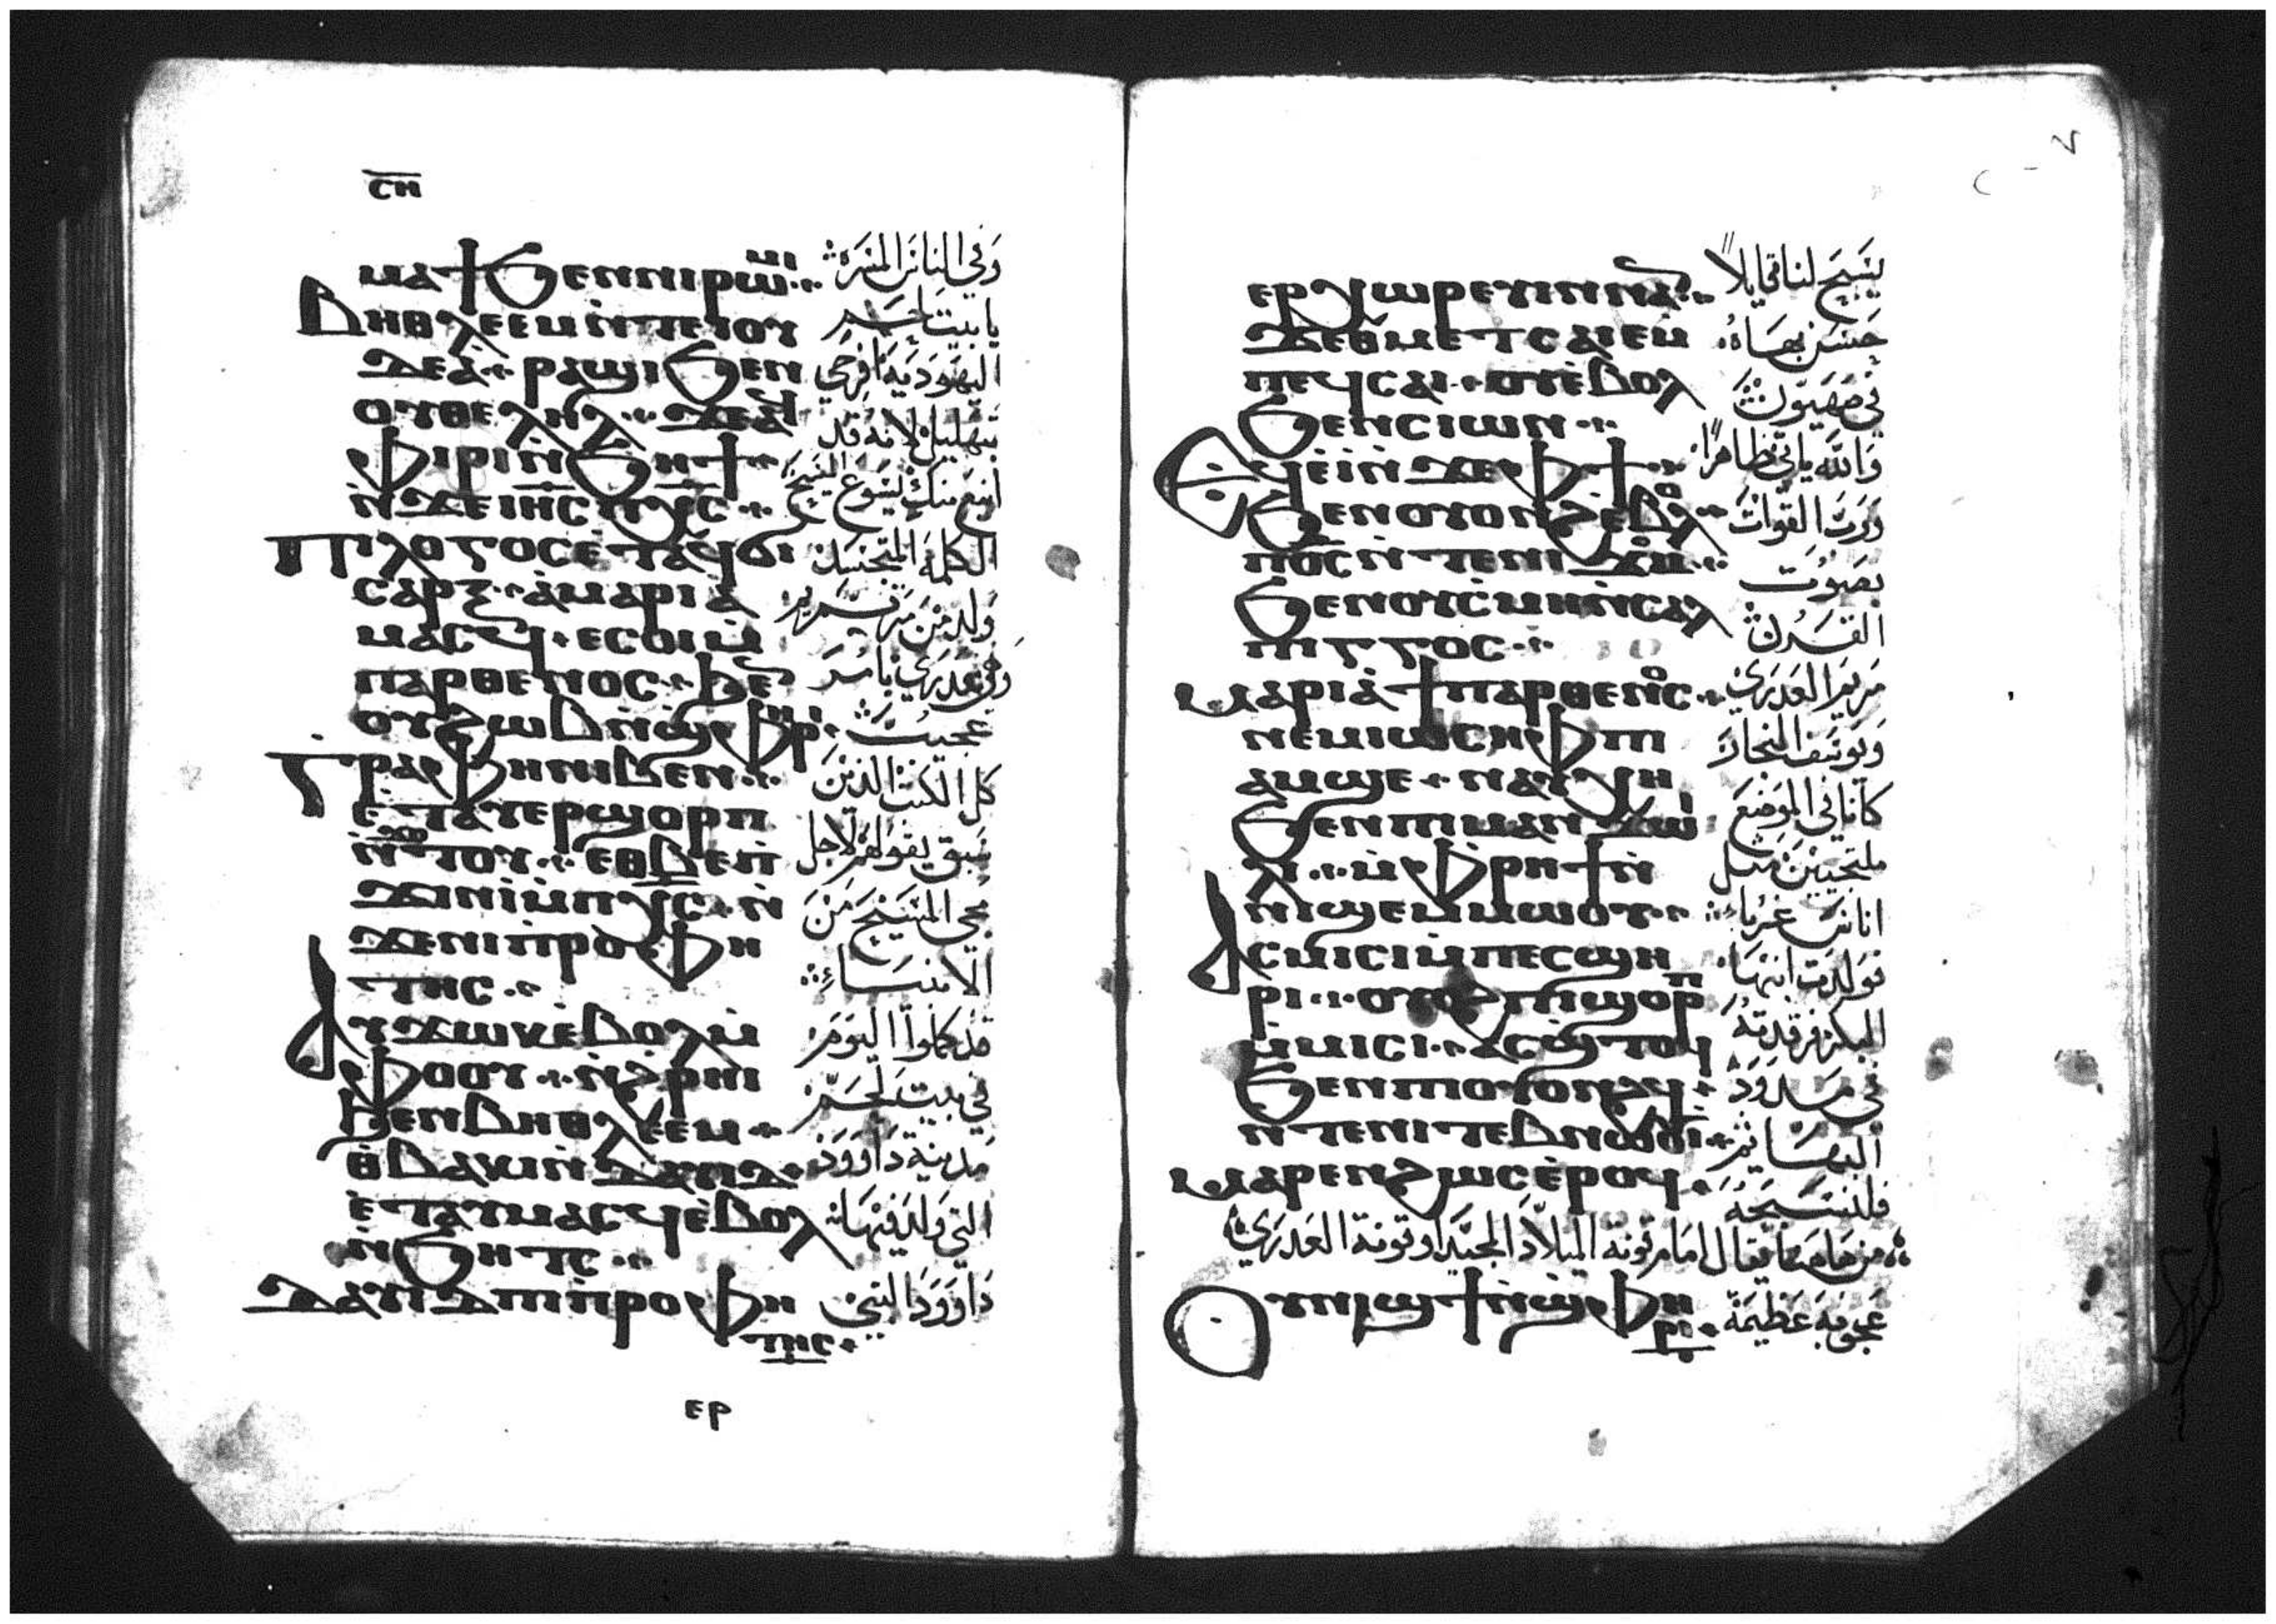 ⲥⲏ
ⲙⲁϯ ϧⲉⲛⲛⲓⲣⲱⲙⲓ
ⲃⲏⲑⲗⲉⲉⲙ ⲛ̀ⲧⲉ ⲓⲟⲩ
ⲇⲉⲁ ⲣⲁϣⲓ ϧⲉⲛ
ⲟⲩⲑⲉⲗⲏⲗ ϫⲉ ⲁϥ
ⲫⲓⲣⲓ ⲛ̀ϧⲏϯ
ⲛ̀ϫⲉ ⲓⲏⲥ ⲡⲭⲥ
ⲡⲓⲗⲟⲅⲟⲥ ⲉ̀ⲧⲁϥϭⲓ
ⲥⲁⲣⲝ ⲁ̀ ⲙⲁⲣⲓⲁ
ⲙⲁⲥϥ ⲉⲥⲟⲓ ⲙ̀
ⲡⲁⲣⲑⲉⲛⲟⲥ
ⲟⲩϩⲱⲃ ⲛ̀ϣⲫⲣⲓ
ⲅⲣⲁⲫⲏ ⲛⲓⲃⲉⲛ
ⲉ̀ⲧⲁⲩⲉⲣϣⲟⲣⲡ
ⲛ̀ϫⲟⲧⲟⲩ ⲉⲑⲃⲉ ⲡ̀
ϫⲓⲛⲓ ⲙ̀ⲡⲭⲥ ⲛ̀
ϫⲉ ⲛⲓⲡⲣⲟⲫⲏ
ⲧⲏⲥ
ⲁⲩϫⲱⲕ ⲉ̀ⲃⲟⲗ ⲙ̀
ⲫⲟⲟⲩ ⲛ̀ϩⲣⲏⲓ
ϧⲉⲛ ⲃⲏⲑⲗⲉⲉⲙ
ⲑ̀ⲃⲁⲕⲓ ⲛ̀ⲇⲁⲩⲓⲇ
ⲉ̀ⲧⲁⲩⲙⲁⲥϥ ⲉ̀ⲃⲟⲗ
ⲛ̀ϧⲏⲧⲥ
ⲇⲁⲩⲓⲇ ⲡⲓⲡⲣⲟⲫⲏ
ⲧⲏⲥ
وفي الناس المسرة
يا بيت لحم
اليهودية افرحي
بتهليل لانه قد
اينع منك يسوع المسيح
الكلمة المتجسد
ولد من مريم
وهي عذري بامر
عجيب
كل الكتب الذين
سبق يقولهم لاجل
مجي المسيح من
الانبياء
قد كملوا اليوم
في بيت لحم
مدينة داوود
التي ولد فيها
داوود النبي
ⲉⲣ
ⲉⲣⲭⲱⲣⲉⲩⲓⲛ ⲛⲁⲛ
ϫⲉ ⲑⲙⲉⲧⲥⲁⲓⲉ ⲙ̀
ⲡⲉϥⲥⲁⲓ ⲟⲩ ⲉ̀ⲃⲟⲗ
ϧⲉⲛ ⲥⲓⲱⲛ
ⲉϥⲉ̀ⲓ̀ ⲛ̀ϫⲉ ⲫϯ
ϧⲉⲛ ⲟⲩⲟⲛϩ ⲉ̀ⲃⲟⲗ
ⲡⲟⲥ ⲛ̀ⲧⲉ ⲛⲓϫⲟⲙ
ϧⲉⲛ ⲟⲩⲥ̀ⲙⲏ ⲛ̀ⲥⲁⲗ
ⲡⲓⲅⲅⲟⲥ
ⲙⲁⲣⲓⲁ̀ ϯⲡⲁⲣⲑⲉⲛⲟⲥ
ⲛⲉⲙ ⲓⲱⲥⲏⲫ ⲡⲓ
ⲁⲙϣⲉ ⲛⲁⲩⲭⲏ
ϧⲉⲛ ⲡⲓⲙⲁⲛ̀ϫⲱⲓ
ⲗⲓ ⲙ̀ⲫⲣⲏϯ ⲛ̀
ⲛⲓϣⲉⲙⲙⲱⲟⲩ
ⲁⲥⲙⲓⲥⲓ ⲙ̀ⲡⲉⲥϣⲏ
ⲣⲓ ⲟⲩⲟϩ ⲡⲓϣⲟⲣⲡ
ⲙ̀ⲙⲓⲥⲓ ⲁⲥϣ̀ⲧⲟϥ
ϧⲉⲛ ⲡⲓⲟⲩⲟⲛϩϥ
ⲛ̀ⲧⲉ ⲛⲓⲧⲉⲃⲛⲱⲟⲩⲓ
ⲙⲁⲣⲉⲛϩⲱⲥ ⲉ̀ⲣⲟϥ
يسبح لنا قايلا
حسن بهاه
في صهيون
والله ياتي ظاهرا
ورب القوات
بصوت
القرن
مريم العذري
ويوسف النجار
كانا في الموضع
ملتجيين مثل
اناس غربا
فولدت ابنها
البكر فرقدته
في مدود
البهايم
فلنسبحه
من هاهنا يقال امام قونة الميلاد المجيد او قونة العذري
ⲟⲩⲛⲓϣϯ ⲛ̀ϣⲫⲏ
ⲣⲓ
عجوبة عظيمة